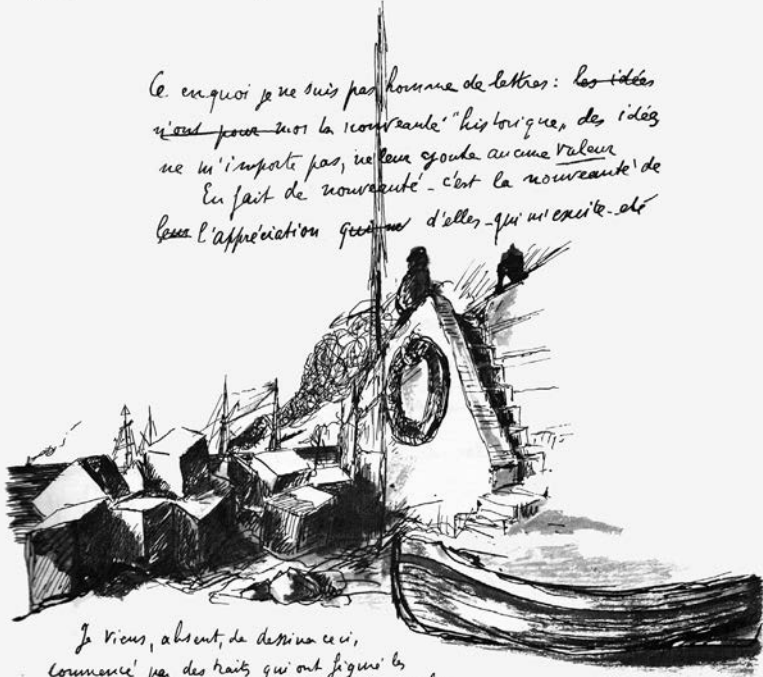 Ce en quoi je ne suis pas homme de lettres : les idées
n'ont pour moi la nouveauté "historique" des idées
ne m'importe pas, ne leur ajoute aucune valeur
En fait de nouveauté - c'est la nouveauté de
leur l'appréciation d'elles - qui m'excite -
Je viens, absent, de dessiner ceci,
commencé par des traits qui ont figuré les